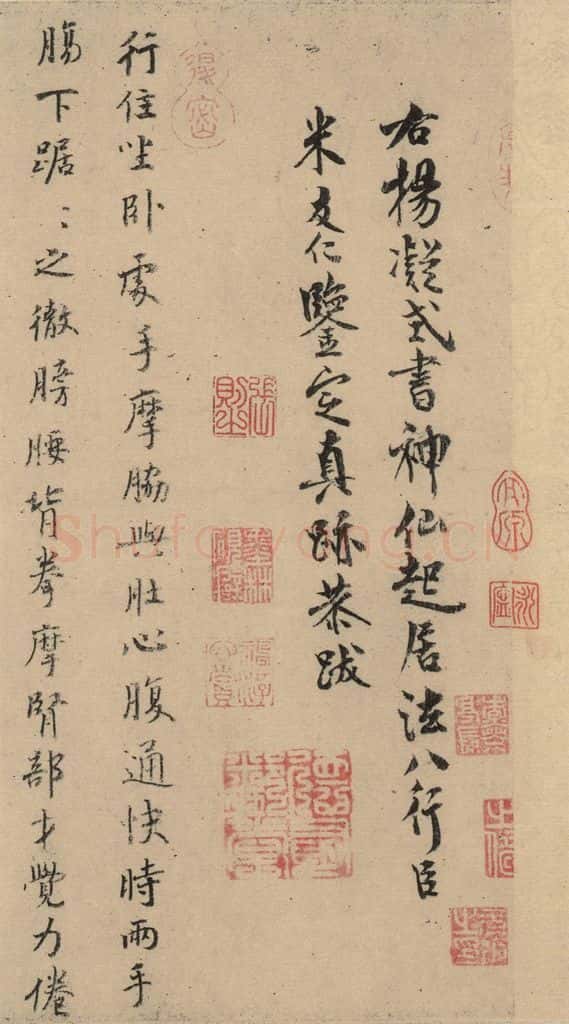 右楊凝式書神仙起居法八行臣
米友仁鑒定真跡恭跋
行住坐卧處手摩脇與肚心腹通快時兩手
腸下踞〻之徹膀腰背拳摩腎部才覺力倦
shufawang.cn